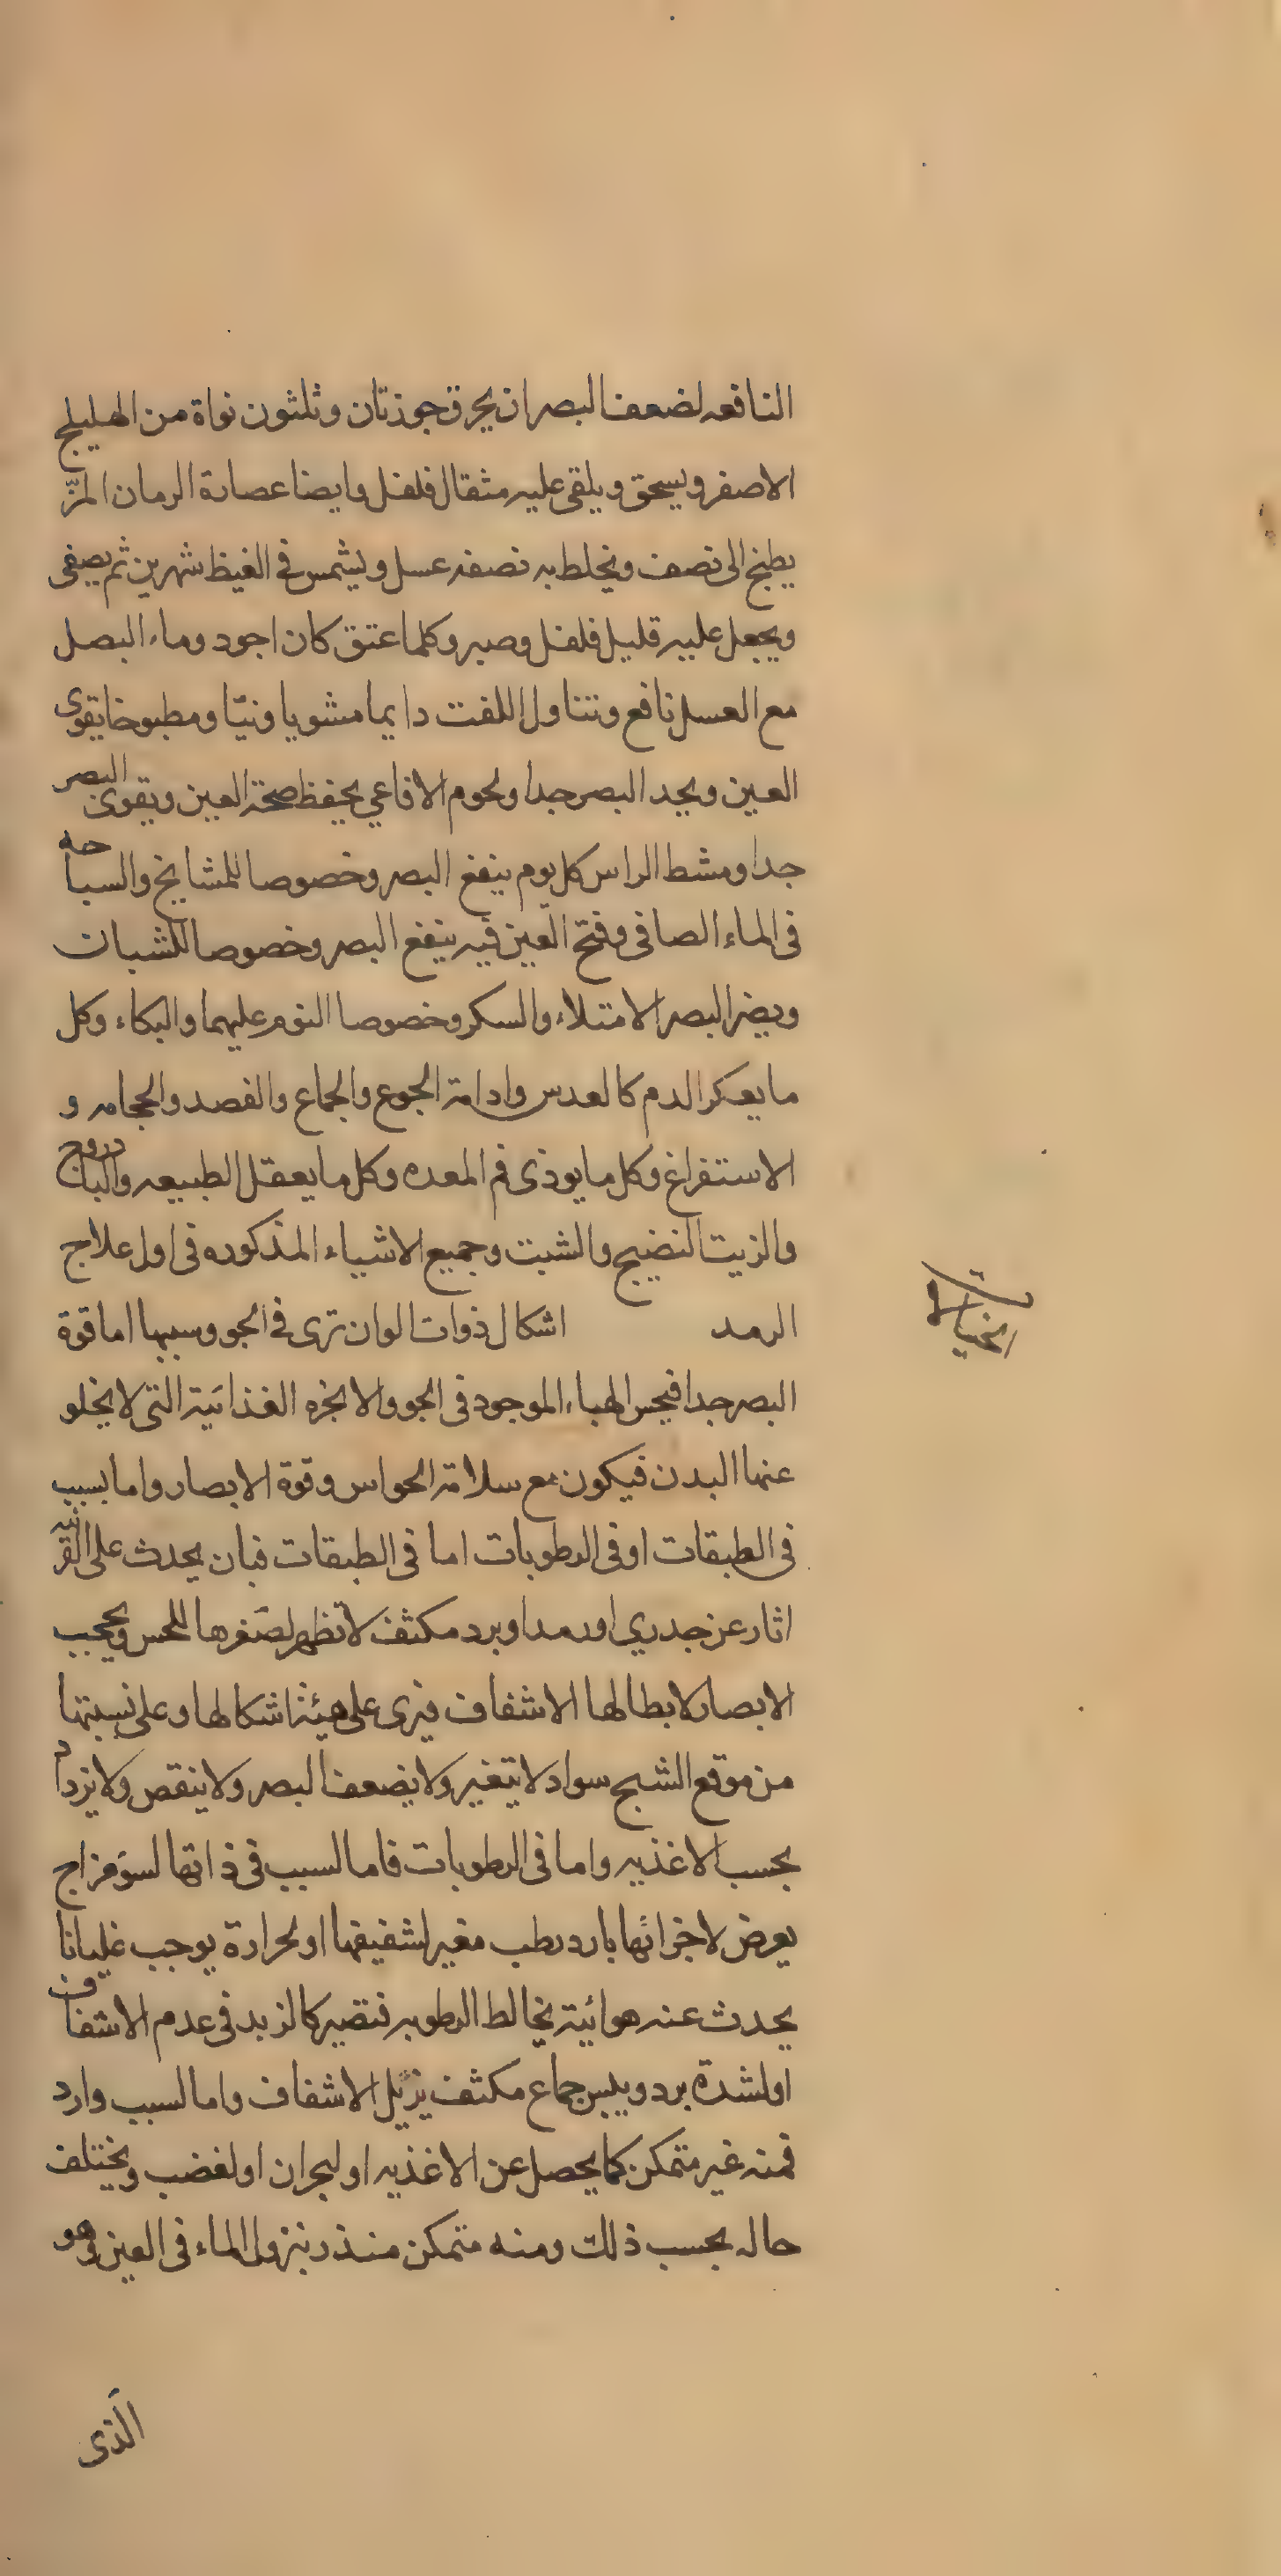 النافعه لضعف البصر ان يحرق جوزتان وثلثون نواة من الهليلج
الاصفر ويسحق ويلقى عليه مثقال فلفل وايضا عصارة الرمان المزّ
يطبخ الى نصف ويخلط به نصفه عسل ويشمس فى القيظ شهرين ثم يصفى
ويجعل عليه قليل فلفل وصبر وكلما عتق كان اجود وماء البصل
مع العسل نافع وتناول اللفت دايما مشويا ونيّا ومطبوخا يقوى
العين ويحد البصر جدا ولحوم الافاعي يحفظ صحة العين ويقوى البصر
جدا ومشط الراس كل يوم ينفع البصر وخصوصا للمشايخ والسباحه
فى الماء الصافى وفتح العين فيه ينفع البصر وخصوصا للشبان
ويضر البصر الامتلاء والسكر وخصوصا النوم عليهما والبكاء وكل
ما يعكر الدم كالعدس وادامة الجوع والجماع والفصد والحجامه و
الاستفراغ وكل ما يوذى فم المعده وكل ما يعقل الطبيعه والباذروج
والزيت النضيج والشبت وجميع الاشياء المذكوره فى اول علاج
الرمد اشكال ذوات الوان ترى فى الجو وسببها اما قوة
الخيالات
البصر جدا فيحس الهباء الموجود فى الجو والابخره الغذائية التى لا يخلو
عنها البدن فيكون مع سلامة الحواس وقوة الابصار واما بسبب
فى الطبقات او فى الرطوبات اما فى الطبقات فبان يحدث على القرنيه
اثار عن جدري او رمد او برد مكثف لا تظهر لصغرها للحس ويحجب
الابصار لابطالها الاشفاف فيرى على هيئة اشكالها وعلى نسبتها
من موقع الشبح سواد لا يتغير ولا يضعف البصر ولا ينقص ولا يزداد
بحسب الاغذيه واما فى الرطوبات فاما لسبب فى ذاتها لسوء مزاج
يعرض لاجزائها بارد رطب مغير لشفيفها او لحرارة يوجب غليانا
يحدث عنه هوائية يخالط الرطوبه فتصير كالزبد فى عدم الاشفاف
او لشدة برد ويبس جماع مكثف يزيل الاشفاف واما لسبب وارد
فمنه غير متمكن كما يحصل عن الاغذيه او لبحران او لغضب ويختلف
حاله بحسب ذلك ومنه متمكن منذر بنزول الماء فى العين وهو
الّذى